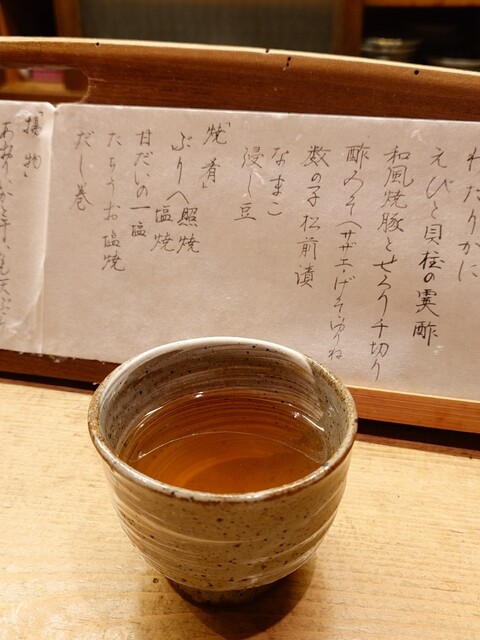 わたりがに
えびと貝柱の黄酢
和風焼豚とせろり千切り
酢みそ(サザエ・げそ・ゆりね
数の子松前漬
なまこ
浸し豆
「焼肴」
ぶり(照焼
塩焼
甘だいの一塩
たちうお塩焼
だし巻
「揚物」